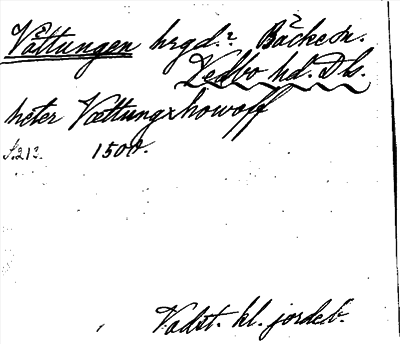 Vättungen hrgd.? Bäcke sn.
Vedbo hd. Dls.
heter Vættungxhowoff
S.213. 1500.
Vadst. kl. jordeb.